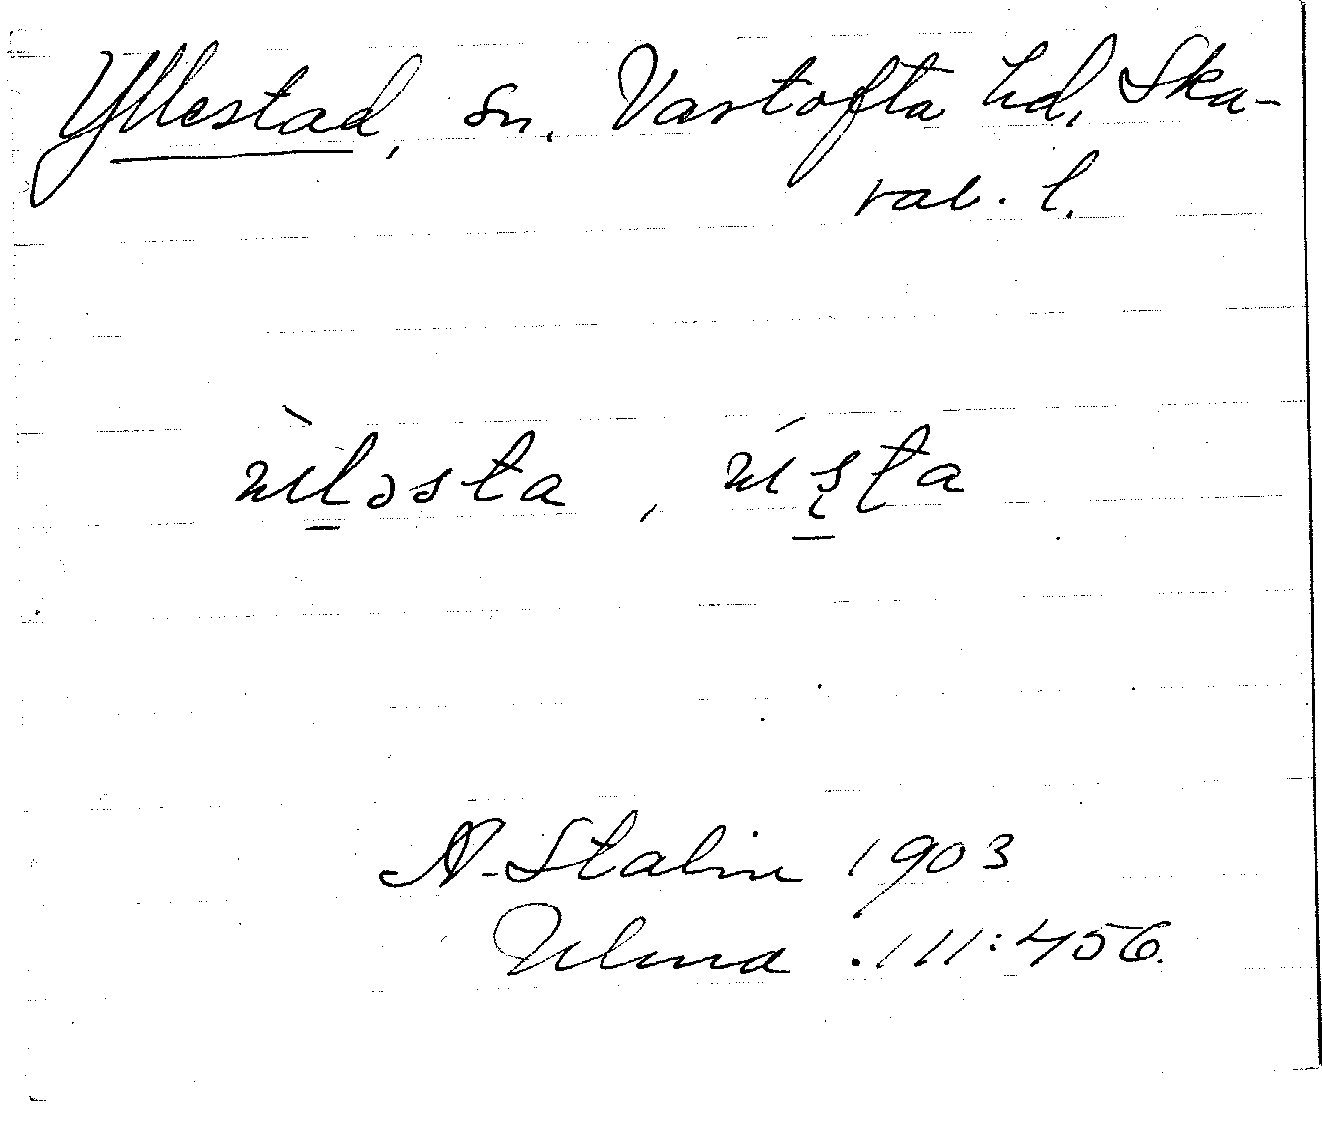 Yllestad, sn. Vartofta hd, Ska-
rab. l.
A. Stalin 1903
Ulma 111:456.